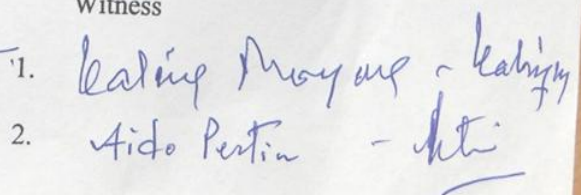 Witness
1. Kaling Moyong -
2. Aido Pertin -